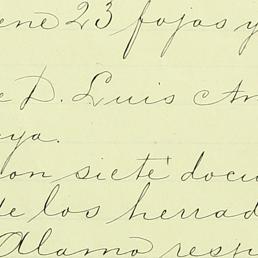 ene 23 fojas y
e D. Luis An
eya.
on siete docu
de los herrad
Alamo resp